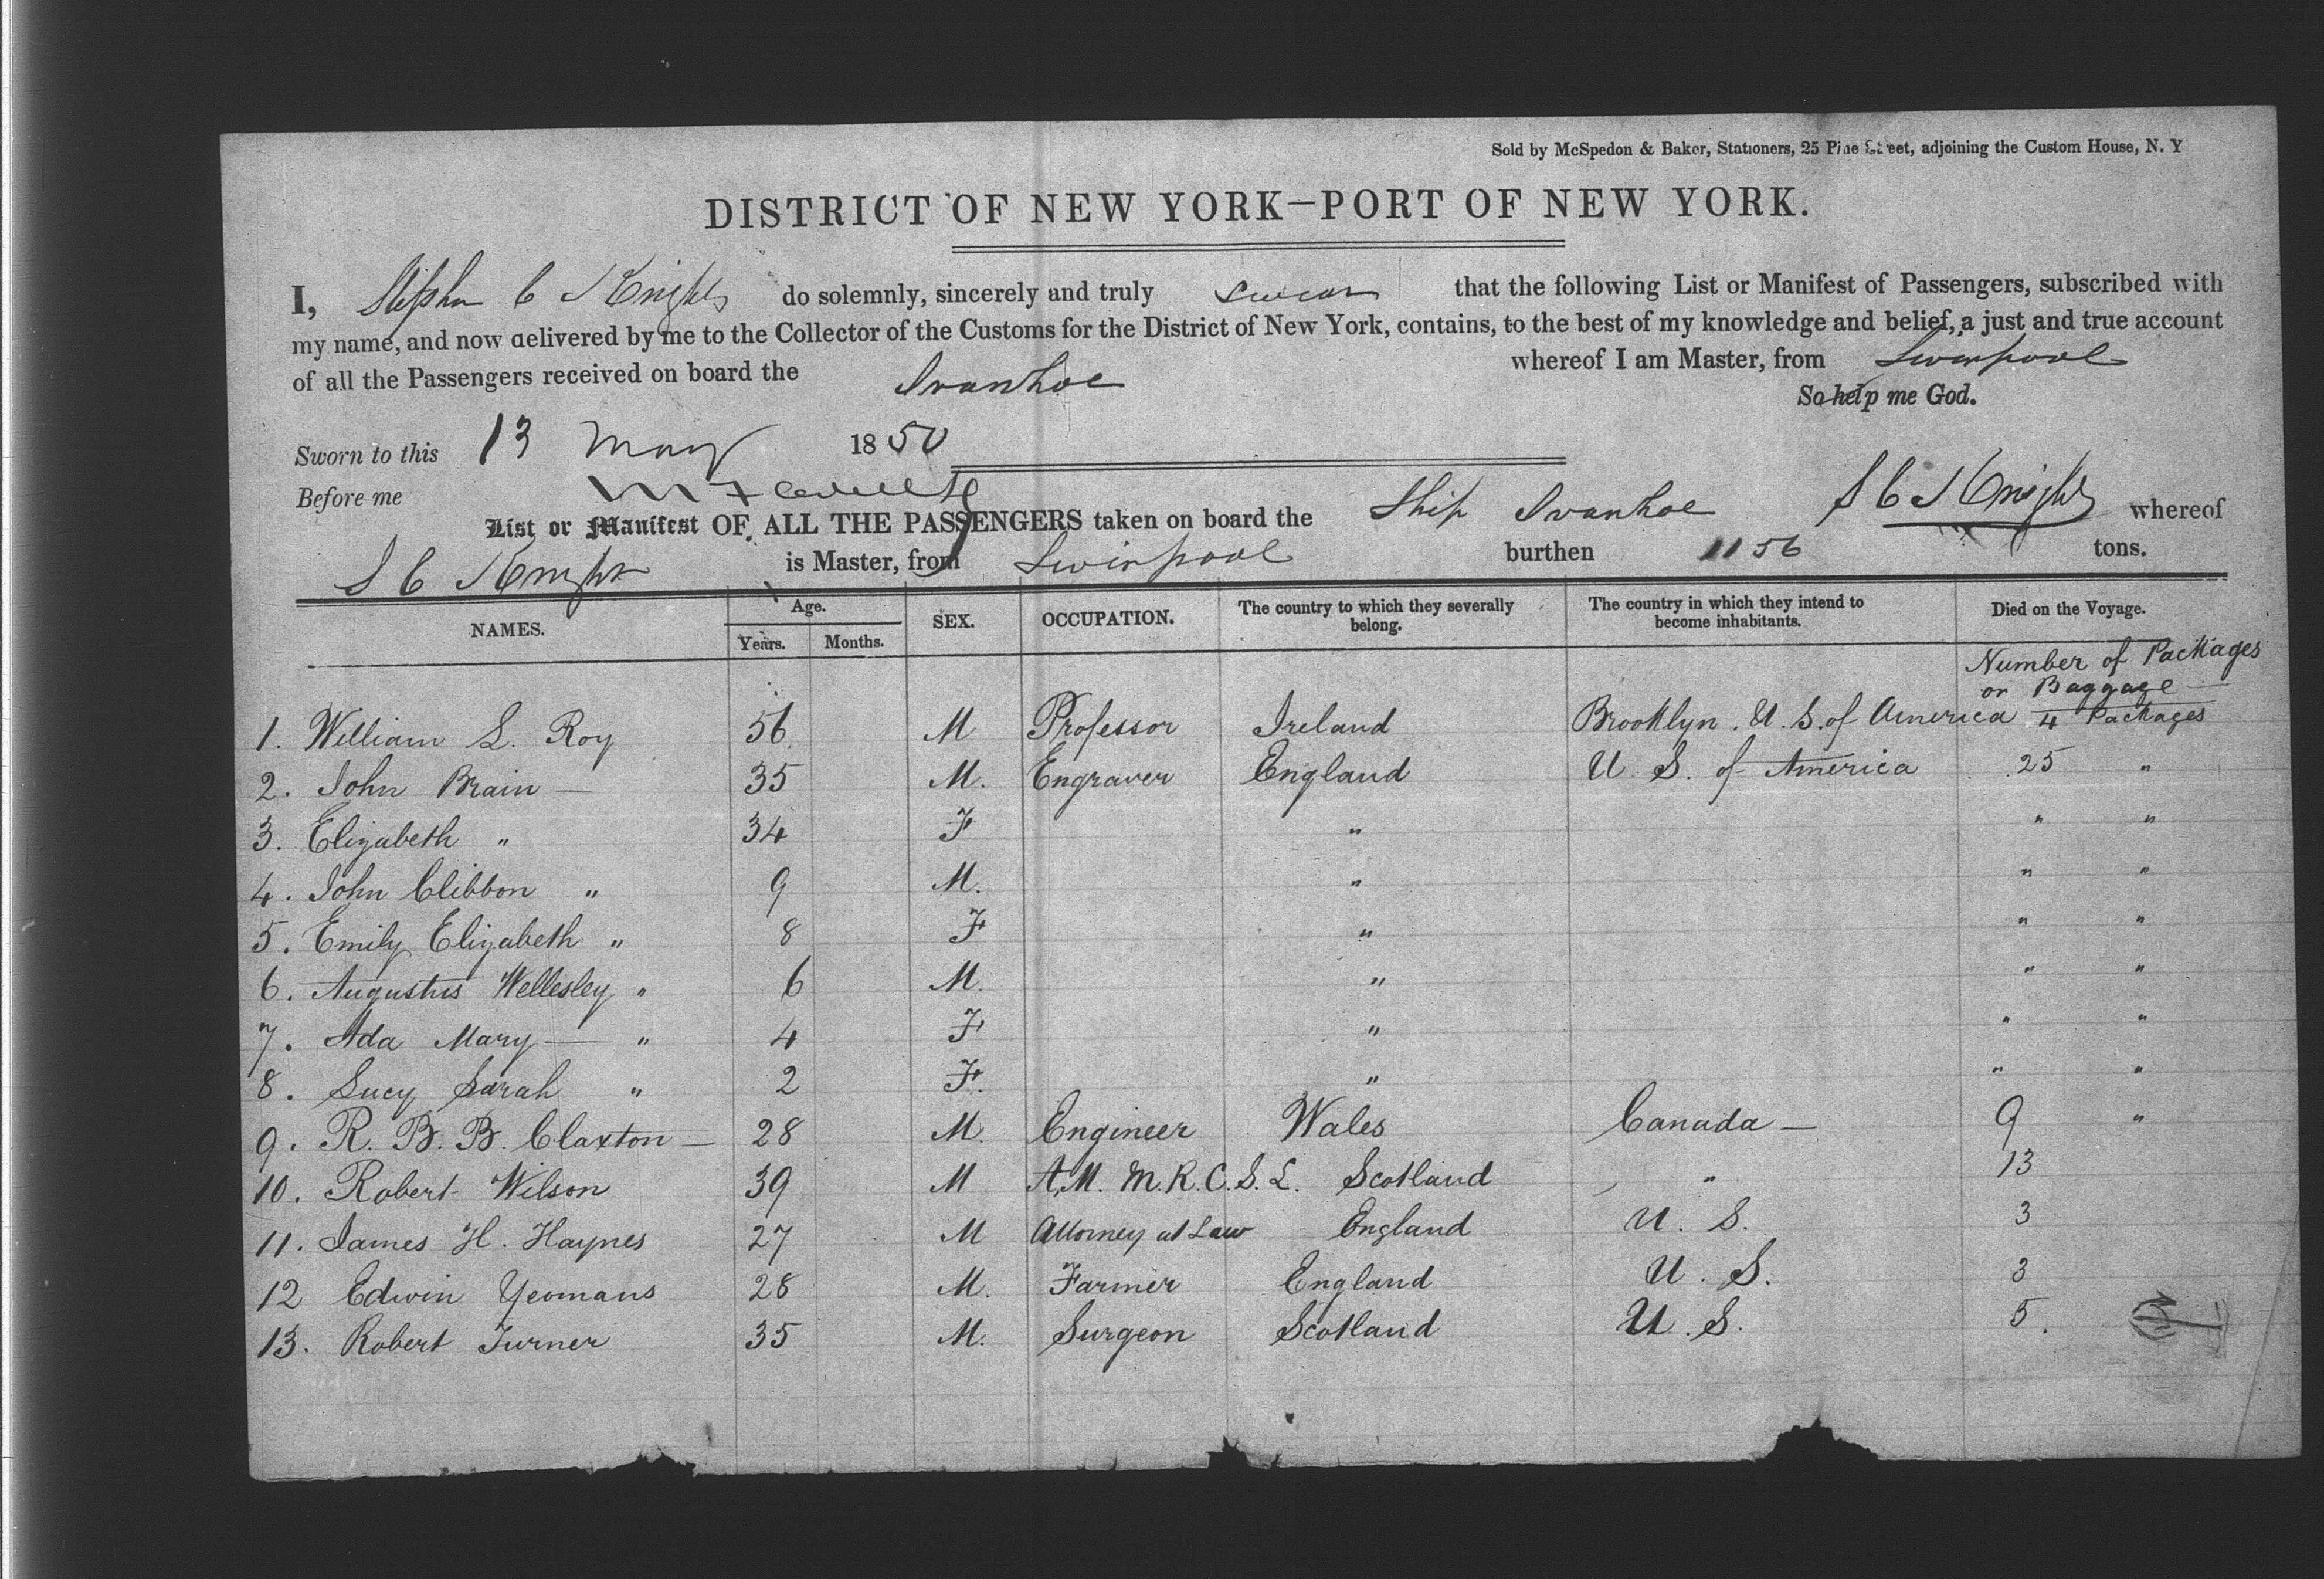 Sold by McSpedon & Baker, Stationers, 25 Pine Street, adjoining the Custom House, N. Y
DISTRICT OF NEW YORK—PORT OF NEW YORK.
I, Stephen C Knight do solemnly, sincerely and truly swear that the following List or Manifest of Passengers, subscribed with
my name, and now delivered by me to the Collector of the Customs for the District of New York, contains, to the best of my knowledge and belief, a just and true account
of all the Passengers received on board the Ivanhoe whereof I am Master, from Liverpool
So help me God.
Sworn to this 13 May 1850
Before me
S C Knight
List or Manifest OF ALL THE PASSENGERS taken on board the Ship Ivanhoe whereof
S C Knight is Master, from Liverpool burthen 1156 tons.
NAMES. Age. Years. Months. SEX. OCCUPATION. The country to which they severally belong. The country in which they intend to become inhabitants. Died on the Voyage.
Number of Packages
or Baggage
1. William L. Roy 56 M Professor Ireland Brooklyn. U. S. of America 4 Packages
2. John Brain — 35 M. Engraver England U. S. of America 25 "
3. Elizabeth " 34 F " " "
4. John Clibbon " 9 M. " " "
5. Emily Elizabeth " 8 F " " "
6. Augustus Wellesley " 6 M. " " "
7. Ada Mary — " 4 F " " "
8. Lucy Sarah " 2 F. " " "
9. R. B. B. Claxton — 28 M. Engineer Wales Canada — 9 "
10. Robert Wilson 39 M A.M. M.R.C.S.L. Scotland " 13
11. James H. Haynes 27 M Attorney at Law England U. S. 3
12 Edwin Yeomans 28 M. Farmer England U. S. 3
13. Robert Turner 35 M. Surgeon Scotland U. S. 5.